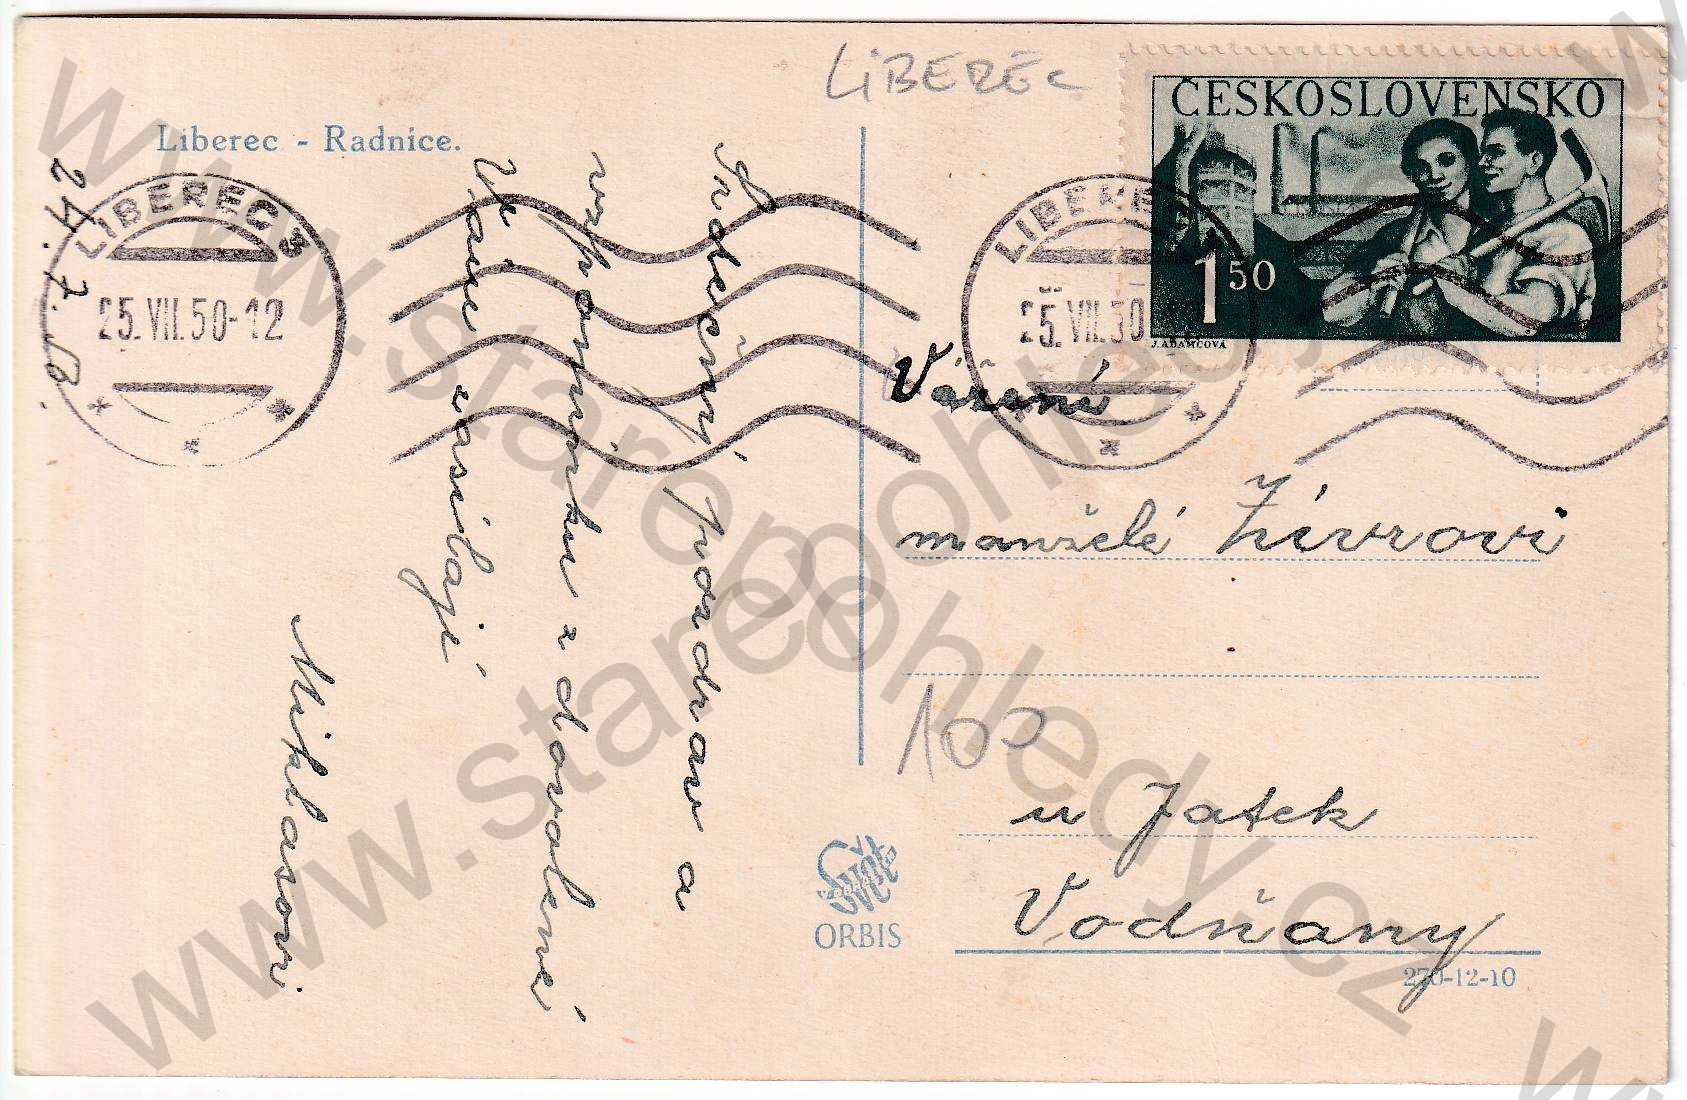 LIBEREC
Liberec - Radnice.
24. 7. 50.
LIBEREC 3
25.VII.50-12
LIBEREC
25.VII.50
ČESKOSLOVENSKO
1 50
J. ADAMCOVÁ
Srdečný pozdrav a
vzpomínku z dovolené
Vám zasílají
Miklasovi
Vážení
manželé Zívrovi
100
u Jatek
Vodňany
Svět
V OBRAZECH
ORBIS
270-12-10
www.starepohledy.cz
www.starepohledy.cz